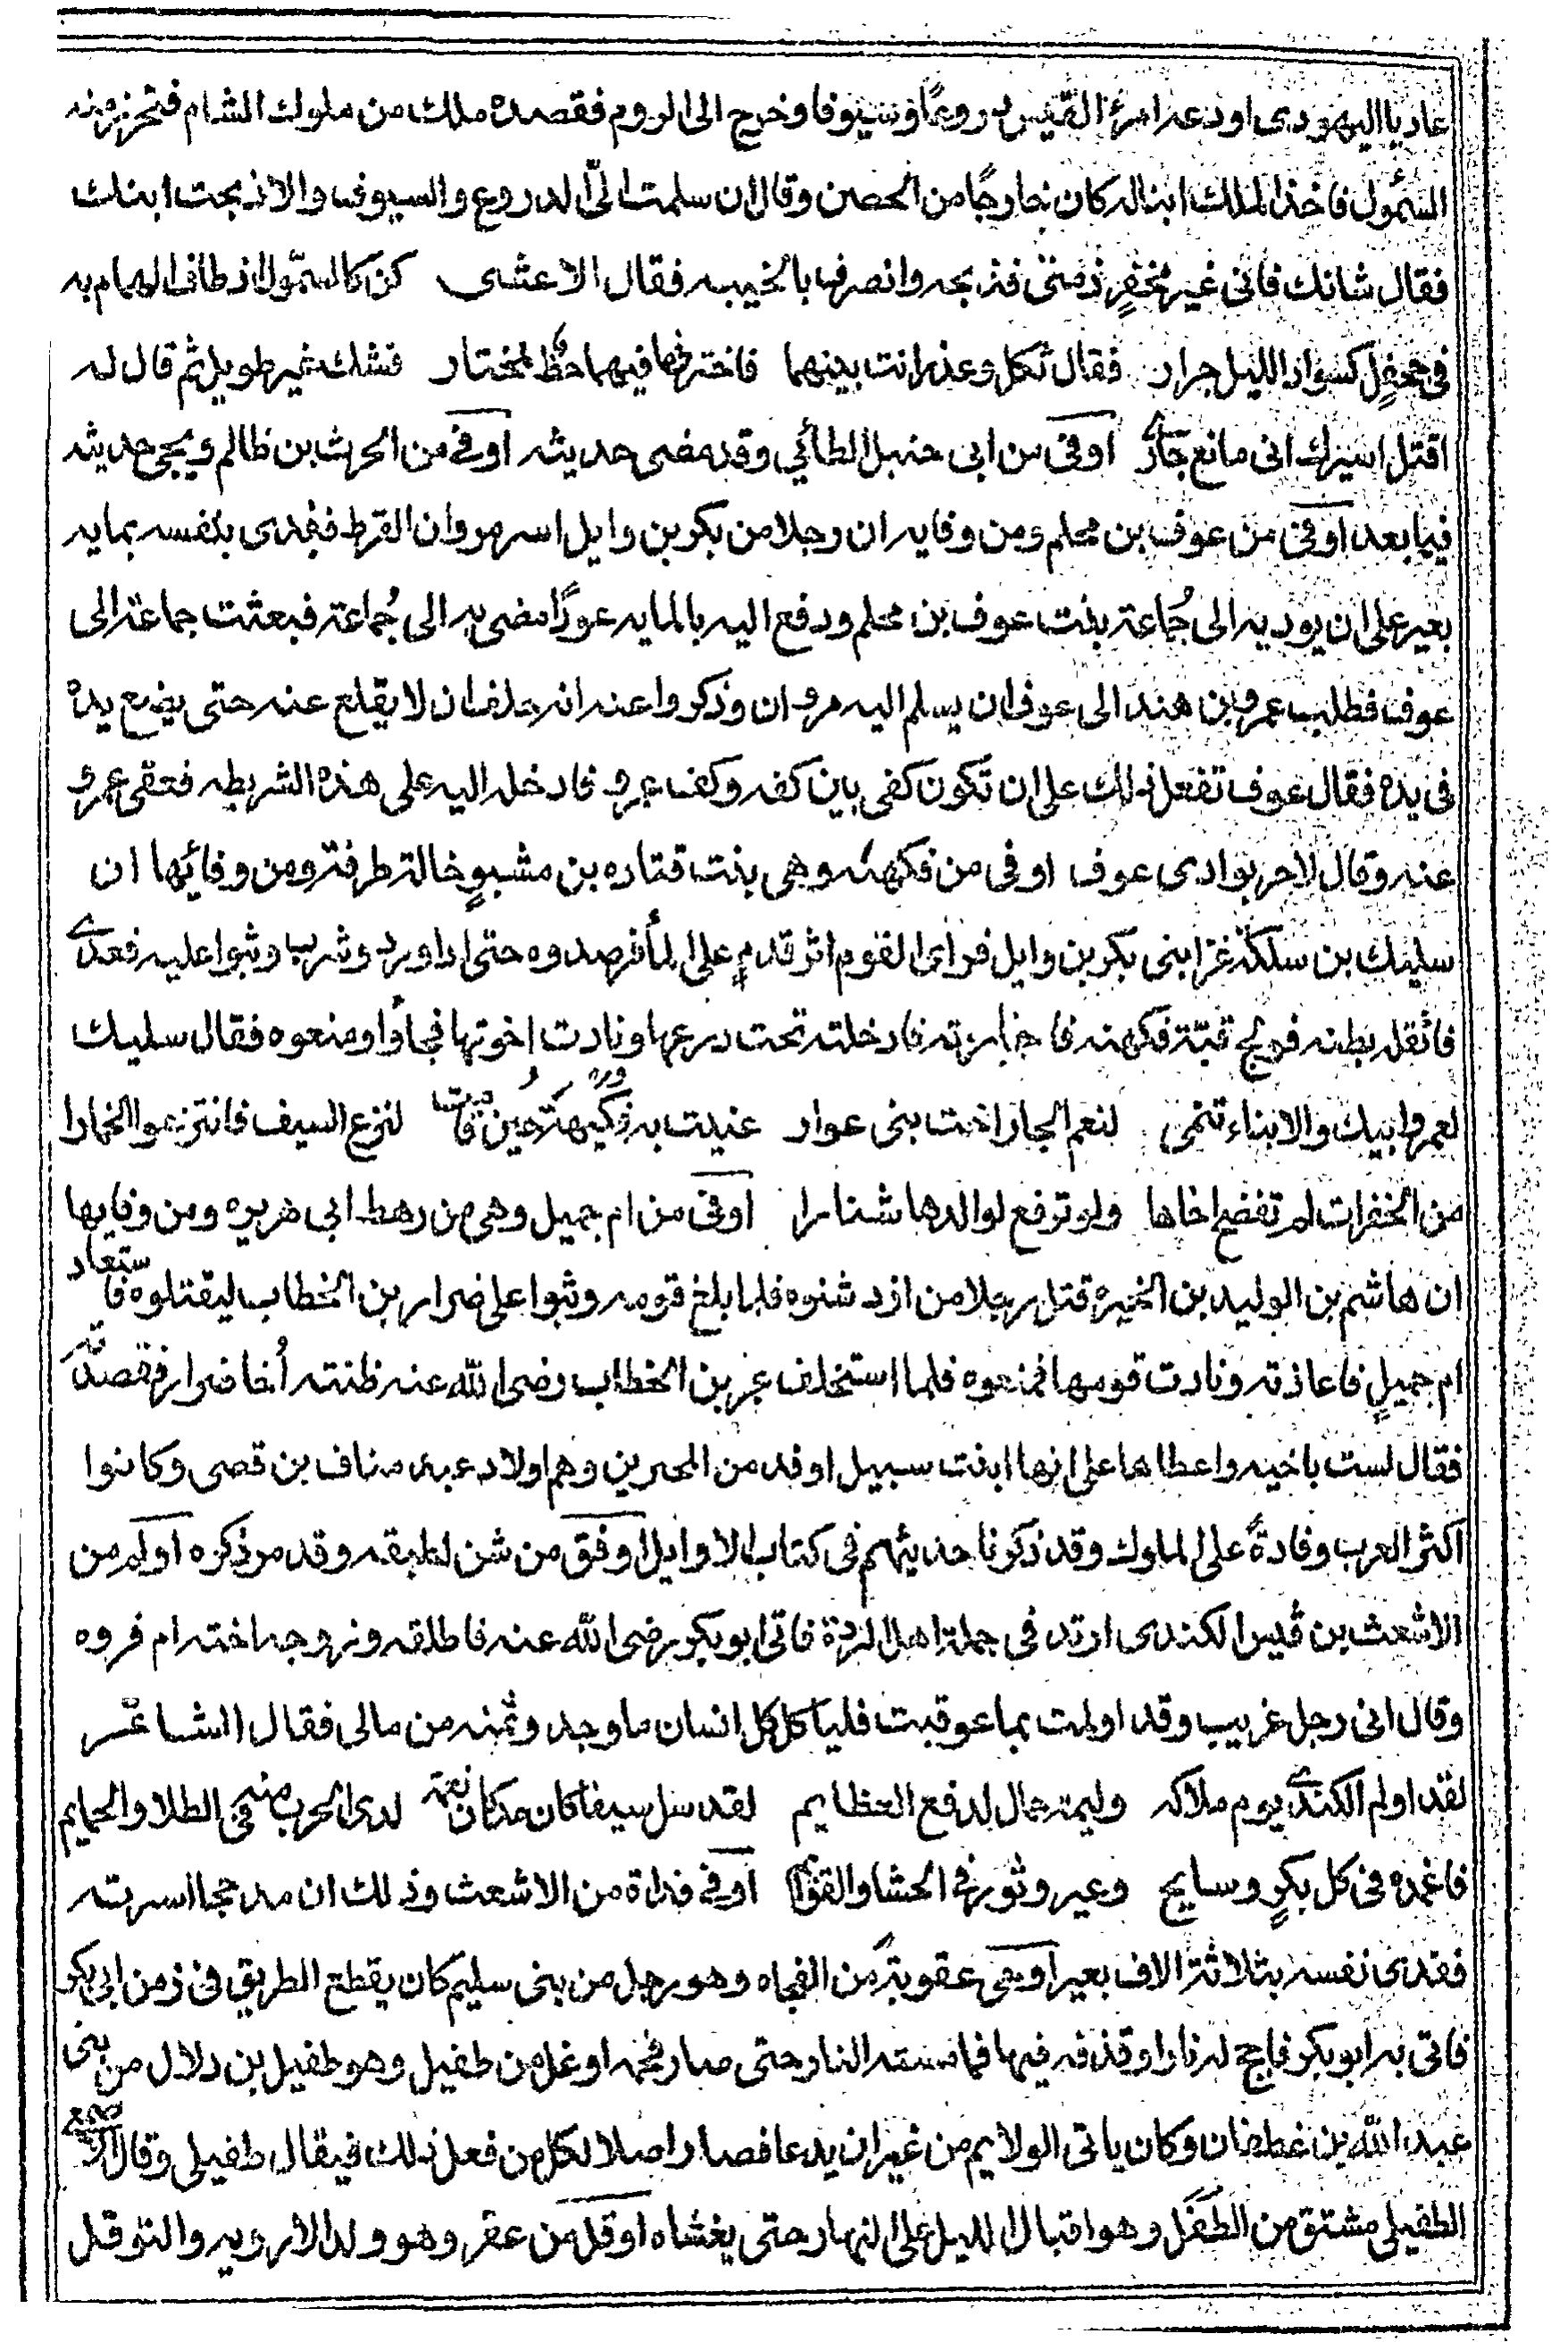 عاديا اليهودى اودعه امرؤ القيس دروعًا وسيوفا وخرج الى الروم فقصده ملك من ملوك الشام فتحرز منه
السمؤل فاخذ الملك ابنا له كان خارجًا من الحصن وقال ان سلمت الىّ الدروع والسيوف والا ذبحت ابنك
فقال شانك فانى غير مخفرٍ ذمتى فذبحه وانصرف بالخيبه فقال الاعشى كن كالسموّل اذ طاف الهمام به
فى جحفلٍ كسواد الليل جرار فقال ثكل وغدر انت بينهما فاختر فما فيهما حظ لمختار فشك غير طويل ثم قال له
اقتل اسيرك انى مانع جارى اوفى من ابى حنبل الطائي وقد مضى حديثه اوفى من الحرث بن ظالم ويجى حديثه
فيما بعد اوفى من عوف بن محلم ومن وفايه ان رجلا من بكر بن وايل اسر مروان القرط ففدى بنفسه بمايه
بعير على ان يوديه الى جُماعة بنت عوف بن محلم ودفع اليه بالمايه عودًا مضى به الى جُماعة فبعثت جماعة الى
عوف فطلب عمرو بن هند الى عوف ان يسلم اليه مروان وذكروا عنه انه حلف ان لا يقلع عنه حتى يضع يده
فى يده فقال عوف تفعل ذلك على ان تكون كفى بين كفه وكف عمرو فادخله اليه على هذه الشريطه فعفى عمرو
عنه وقال لاحر بوادى عوف اوفى من فكهة وهى بنت قتاده بن مشبوٍ خالة طرفة ومن وفائها ان
سليك بن سلكة غزا بنى بكر بن وايل فراى القوم اثر قدمٍ على الماء فرصدوه حتى اذا ورد وشرب وثبوا عليه فعدى
فاثقله بطنه فولج قبّة فكهة فاجارته فادخلته تحت درعها ونادت اخوتها فجاؤا ومنعوه فقال سليك
لعمرو ابيك والابناء تنمى لنعم الجار اخت بنى عوار عنيت به فكيهة حين قامت لنزع السيف فانتزعوا الخمارا
من الخفرات لم تفضح اخاها ولو ترفع لوالدها شنارا اوفى من ام جميل وهى من رهط ابى هريره ومن وفايها
ان هاشم بن الوليد بن المغيرة قتل رجلا من ازد شنوه فلما بلغ قومه وثبوا على ضرار بن الخطاب ليقتلوه فاستعاد
ام جميلٍ فاعاذته ونادت قومها فمنعوه فلما استخلف عمر بن الخطاب رضى الله عنه ظنته أخا ضرار فقصدته
فقال لست باخيه واعطاها على انها ابنت سبيل اوفد من المجبرين وهم اولاد عبد مناف بن قصى وكانوا
اكثر العرب وفادةً على الملوك وقد ذكرنا حديثهم فى كتاب الاوايل اوفق من شن لطبقه وقد مر ذكره اولم من
الاشعث بن قيس الكندى ارتد فى جملة اهل الردة فاتى ابو بكر رضى الله عنه فاطلقه وزوجه اخته ام فروه
وقال انى رجل غريب وقد اولمت بما عوقبت فلياكل كل انسان ما وجد وثمنه من مالى فقال الشاعر
لقد اولم الكندى يوم ملاكه وليمة حمال لدفع العظايم لقد سل سيفا كان مذ كان نقمة لدى الحرب منه فى الطلا والجمايم
فاغمده فى كل بكرٍ وسايح وعير وثور فى الحشا والقوايم اوفى فداة من الاشعث وذلك ان مدججا اسرته
ففدى نفسه بثلاثة الاف بعير اوهى عقوبة من الفجاه وهو رجل من بنى سليم كان يقطع الطريق فى زمن ابى بكر
فاتى به ابو بكر فاجج له نارا وقذفه فيها فما مسته النار حتى صار فحمه اوغل من طفيل وهو طفيل بن دلال من بنى
عبد الله بن غطفان وكان ياتى الولايم من غير ان يدعا فصار اصلا لكل من فعل ذلك فيقال طفيلى وقال الاصمعى
الطفيلى مشتق من الطَفَل وهو اقبال الليل على النهار حتى يغشاه اوقل من غفر وهو ولد الارويه والتوقل